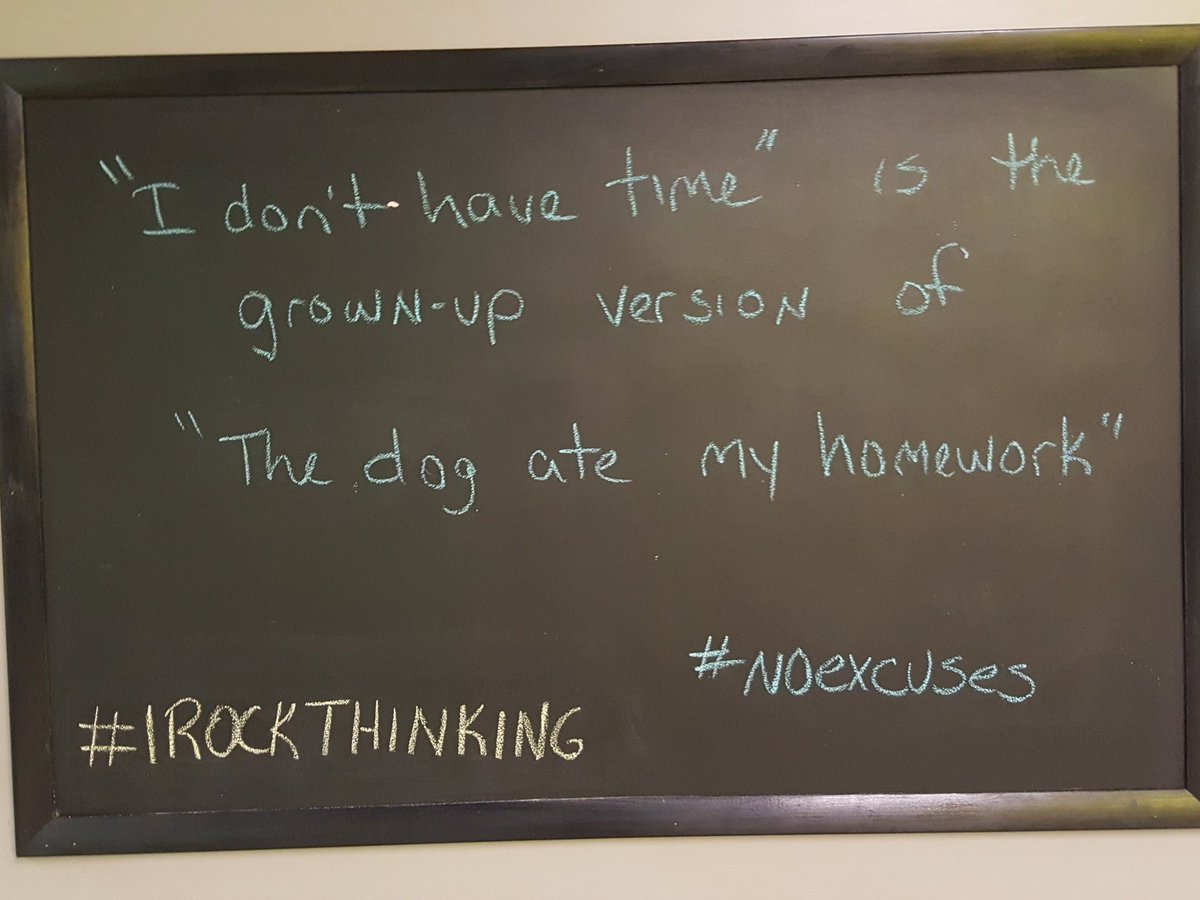 "I don't have time" is the
grown-up version of
"The dog ate my homework"
#noexcuses
#IROCKTHINKING